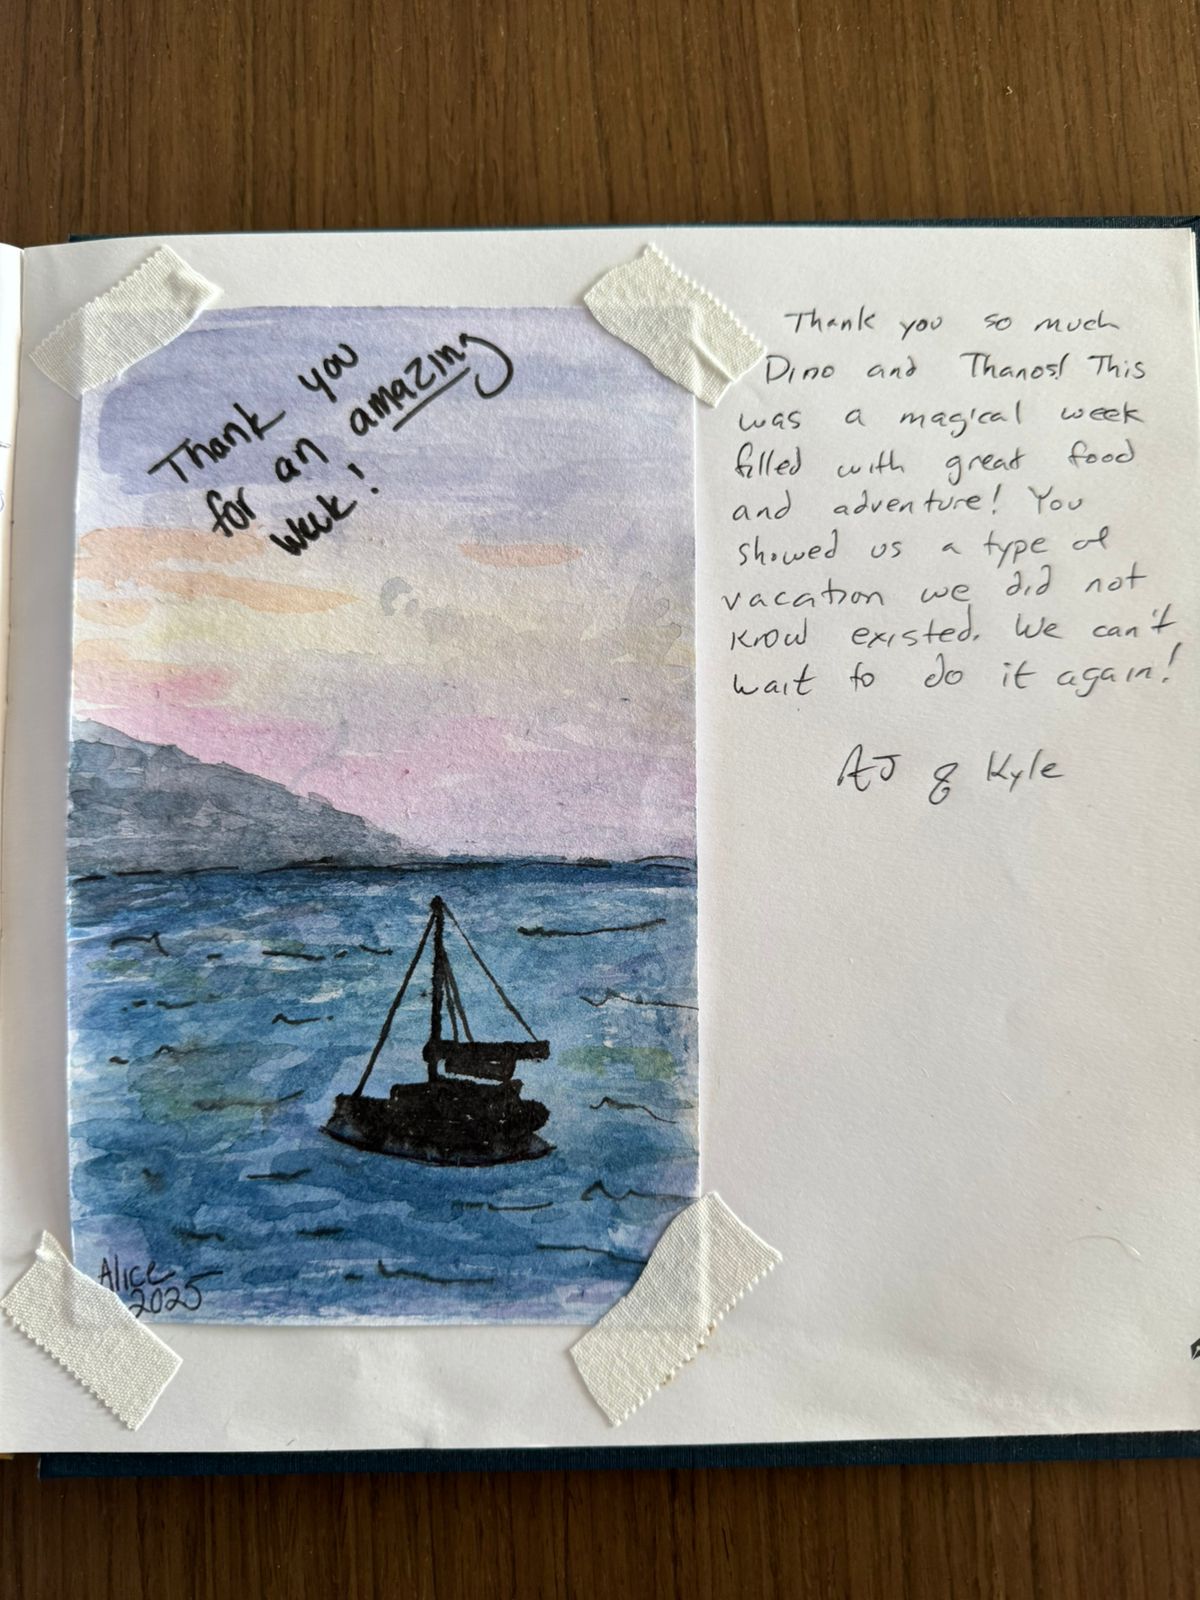 Thank you
for an amazing
week!
Alice
2025
Thank you so much
Dino and Thanos! This
was a magical week
filled with great food
and adventure! You
showed us a type of
vacation we did not
know existed. We can't
wait to do it again!
AJ & Kyle